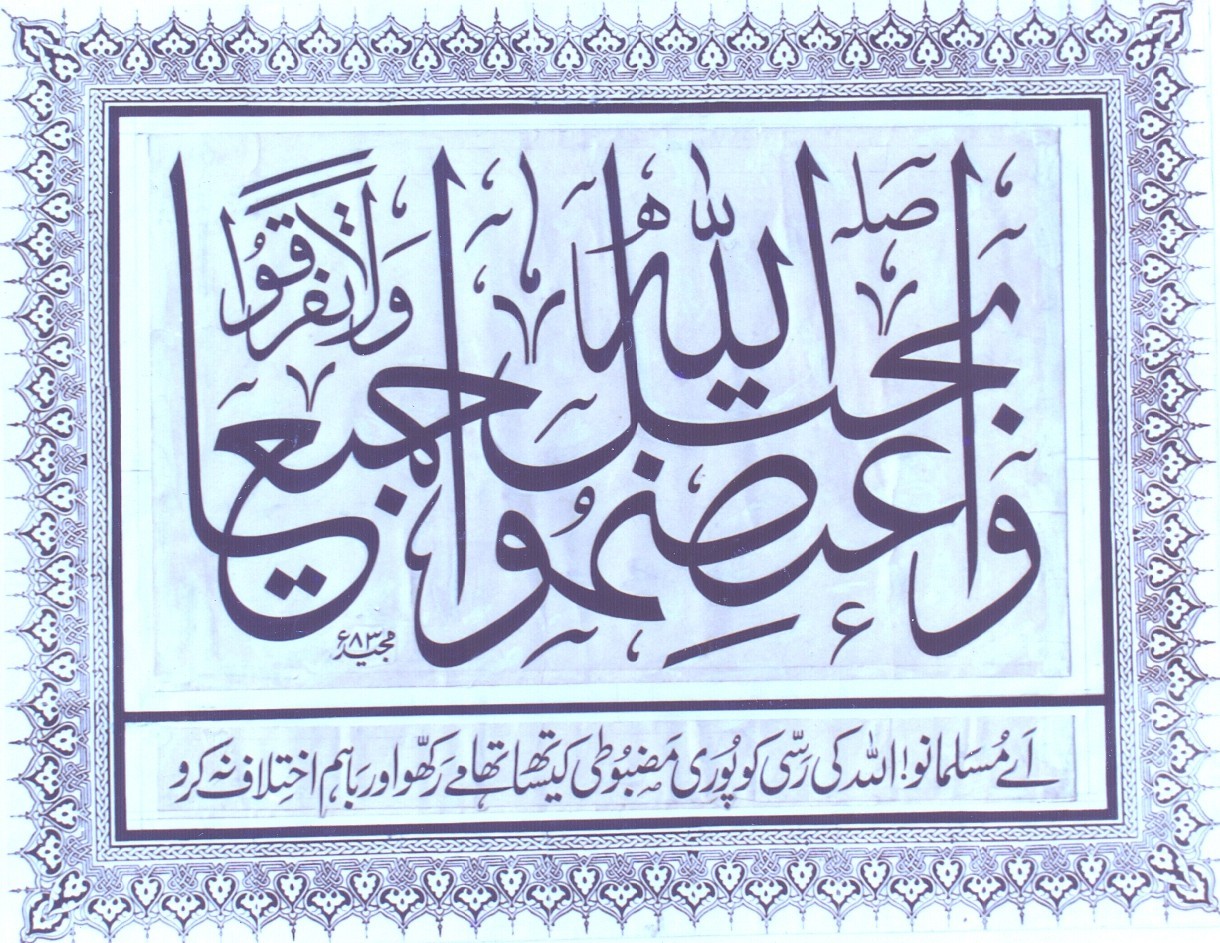 واعتصموا بحبل الله جميعا ولا تفرقوا
صله
مجید ۸۳ء
اَے مُسَلمانو! اللہ کی رَسّی کو پُوری مَضبُوطی کیساتھ تھامے رَکھّو اور بَاہم اختِلاف نہ کرو